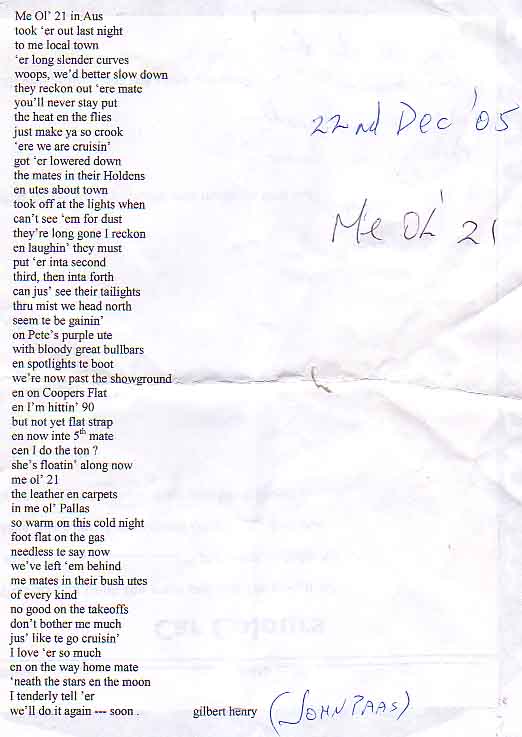 Me Ol' 21 in Aus
took 'er out last night
to me local town
'er long slender curves
woops, we'd better slow down
they reckon out 'ere mate
you'll never stay put
the heat en the flies
just make ya so crook
'ere we are cruisin'
got 'er lowered down
the mates in their Holdens
en utes about town
took off at the lights when
can't see 'em for dust
they're long gone I reckon
en laughin' they must
put 'er inta second
third, then inta forth
can jus' see their tailights
thru mist we head north
seem te be gainin'
on Pete's purple ute
with bloody great bullbars
en spotlights te boot
we're now past the showground
en on Coopers Flat
en I'm hittin' 90
but not yet flat strap
en now inte 5th mate
cen I do the ton ?
she's floatin' along now
me ol' 21
the leather en carpets
in me ol' Pallas
so warm on this cold night
foot flat on the gas
needless te say now
we've left 'em behind
me mates in their bush utes
of every kind
no good on the takeoffs
don't bother me much
jus' like te go cruisin'
I love 'er so much
en on the way home mate
'neath the stars en the moon
I tenderly tell 'er
we'll do it again --- soon .
gilbert henry (JOHN PAAS)
22nd Dec '05
Me OL' 21
Car Colours